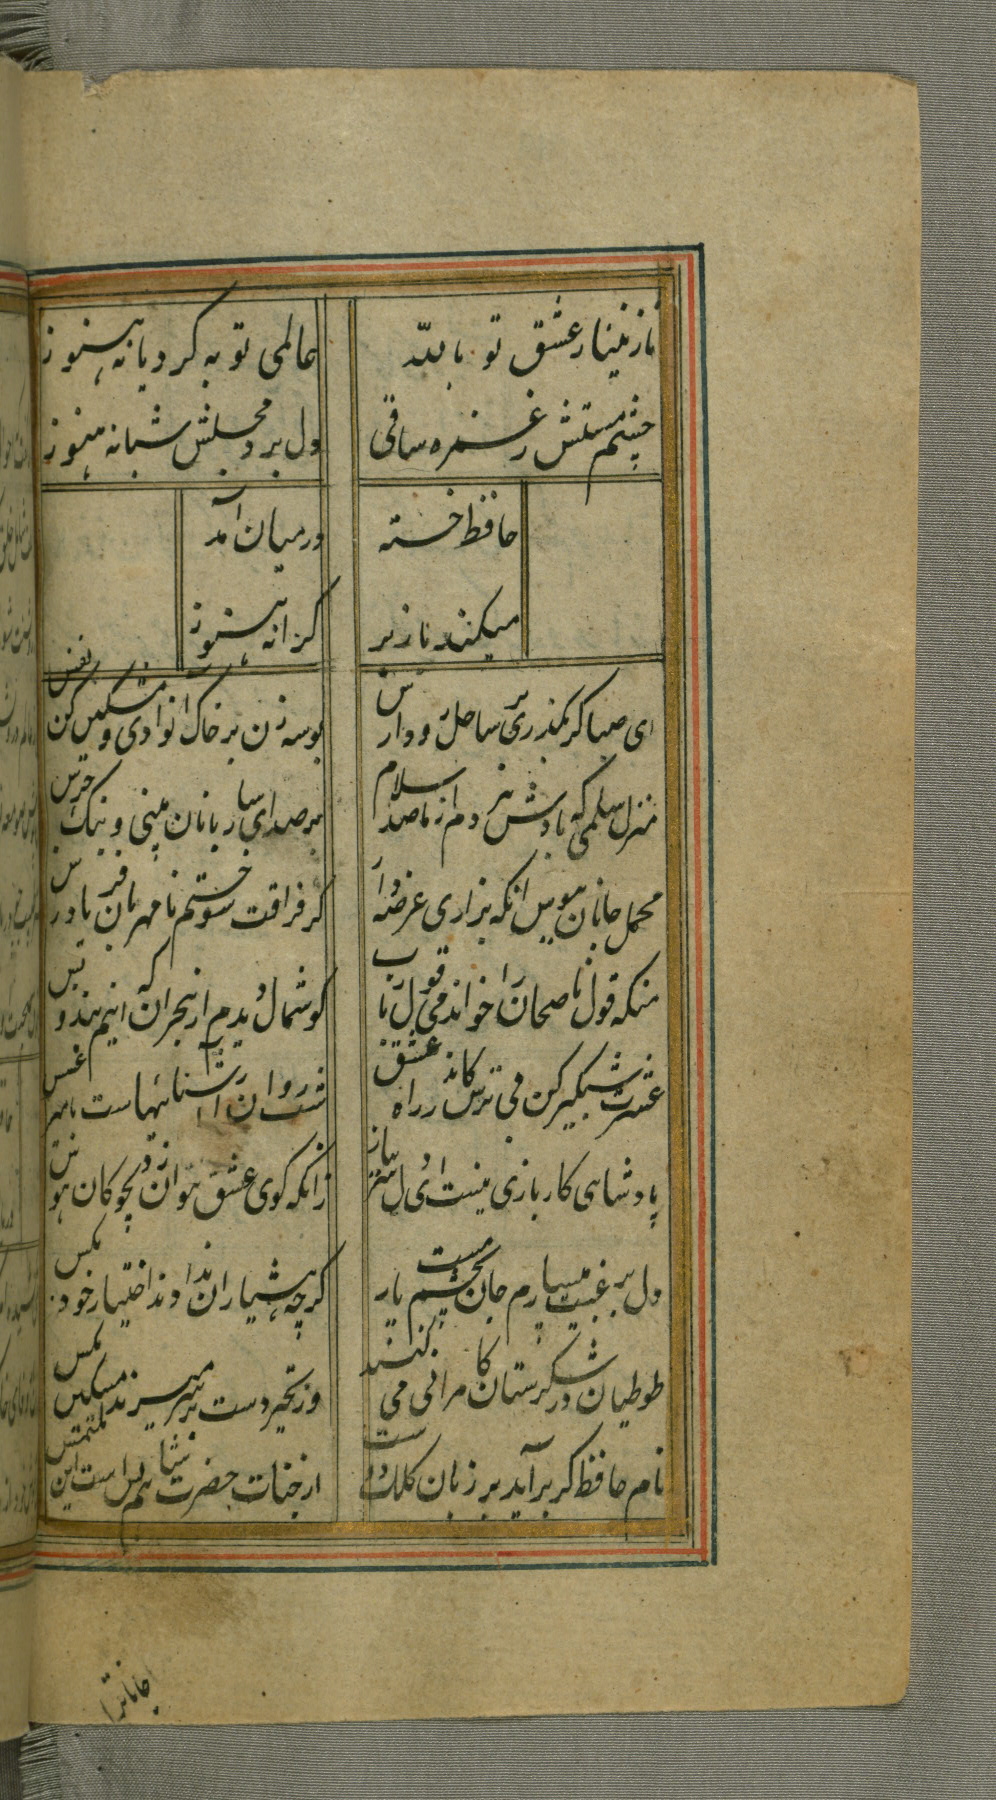 نازنینار عشق تو بالله
عالمی توبه کرد یا نه هنوز
چشم مستش ز غمزه ساقی
دل برد مجلس شبانه هنوز
حافظ خسته
در میان آمد
میکند باز بر
کرانه هنوز
ای صبا کر بکذری بر ساحل رود ارس
بوسه زن بر خاک آن وادی و مشکین کن نفس
منزل سلمی که بادش هر دم از ما صد سلام
بر صدای ساربانان بینی و بنک جرس
محمل جانان ببوس آنکه بزاری عرضه دار
کز فراقت سوختم نامهربان فریاد رس
منکه قول ناصحان را خواندمی قول رباب
کوشمال دیدم از هجران که اینم پند و بس
عشرت شبکیر کن می ترس کاندر راه عشق
شب روان را آشنائیهاست با میر عسس
پادشاهی کار بازی نیست ای دل سر بباز
زانکه کوی عشق نتوان زد بچوکان هوس
دل برغبت میسپارم جان بچشم مست یار
کرچه هشیاران ندادند اختیار خود بکس
طوطیان در شکرستان کامرانی می کنند
وز تحیر دست بر سر میزند مسکین مکس
نام حافظ کر برآید بر زبان کلک دوست
از جناب حضرت شاهم بس است این ملتمس
جانا ترا